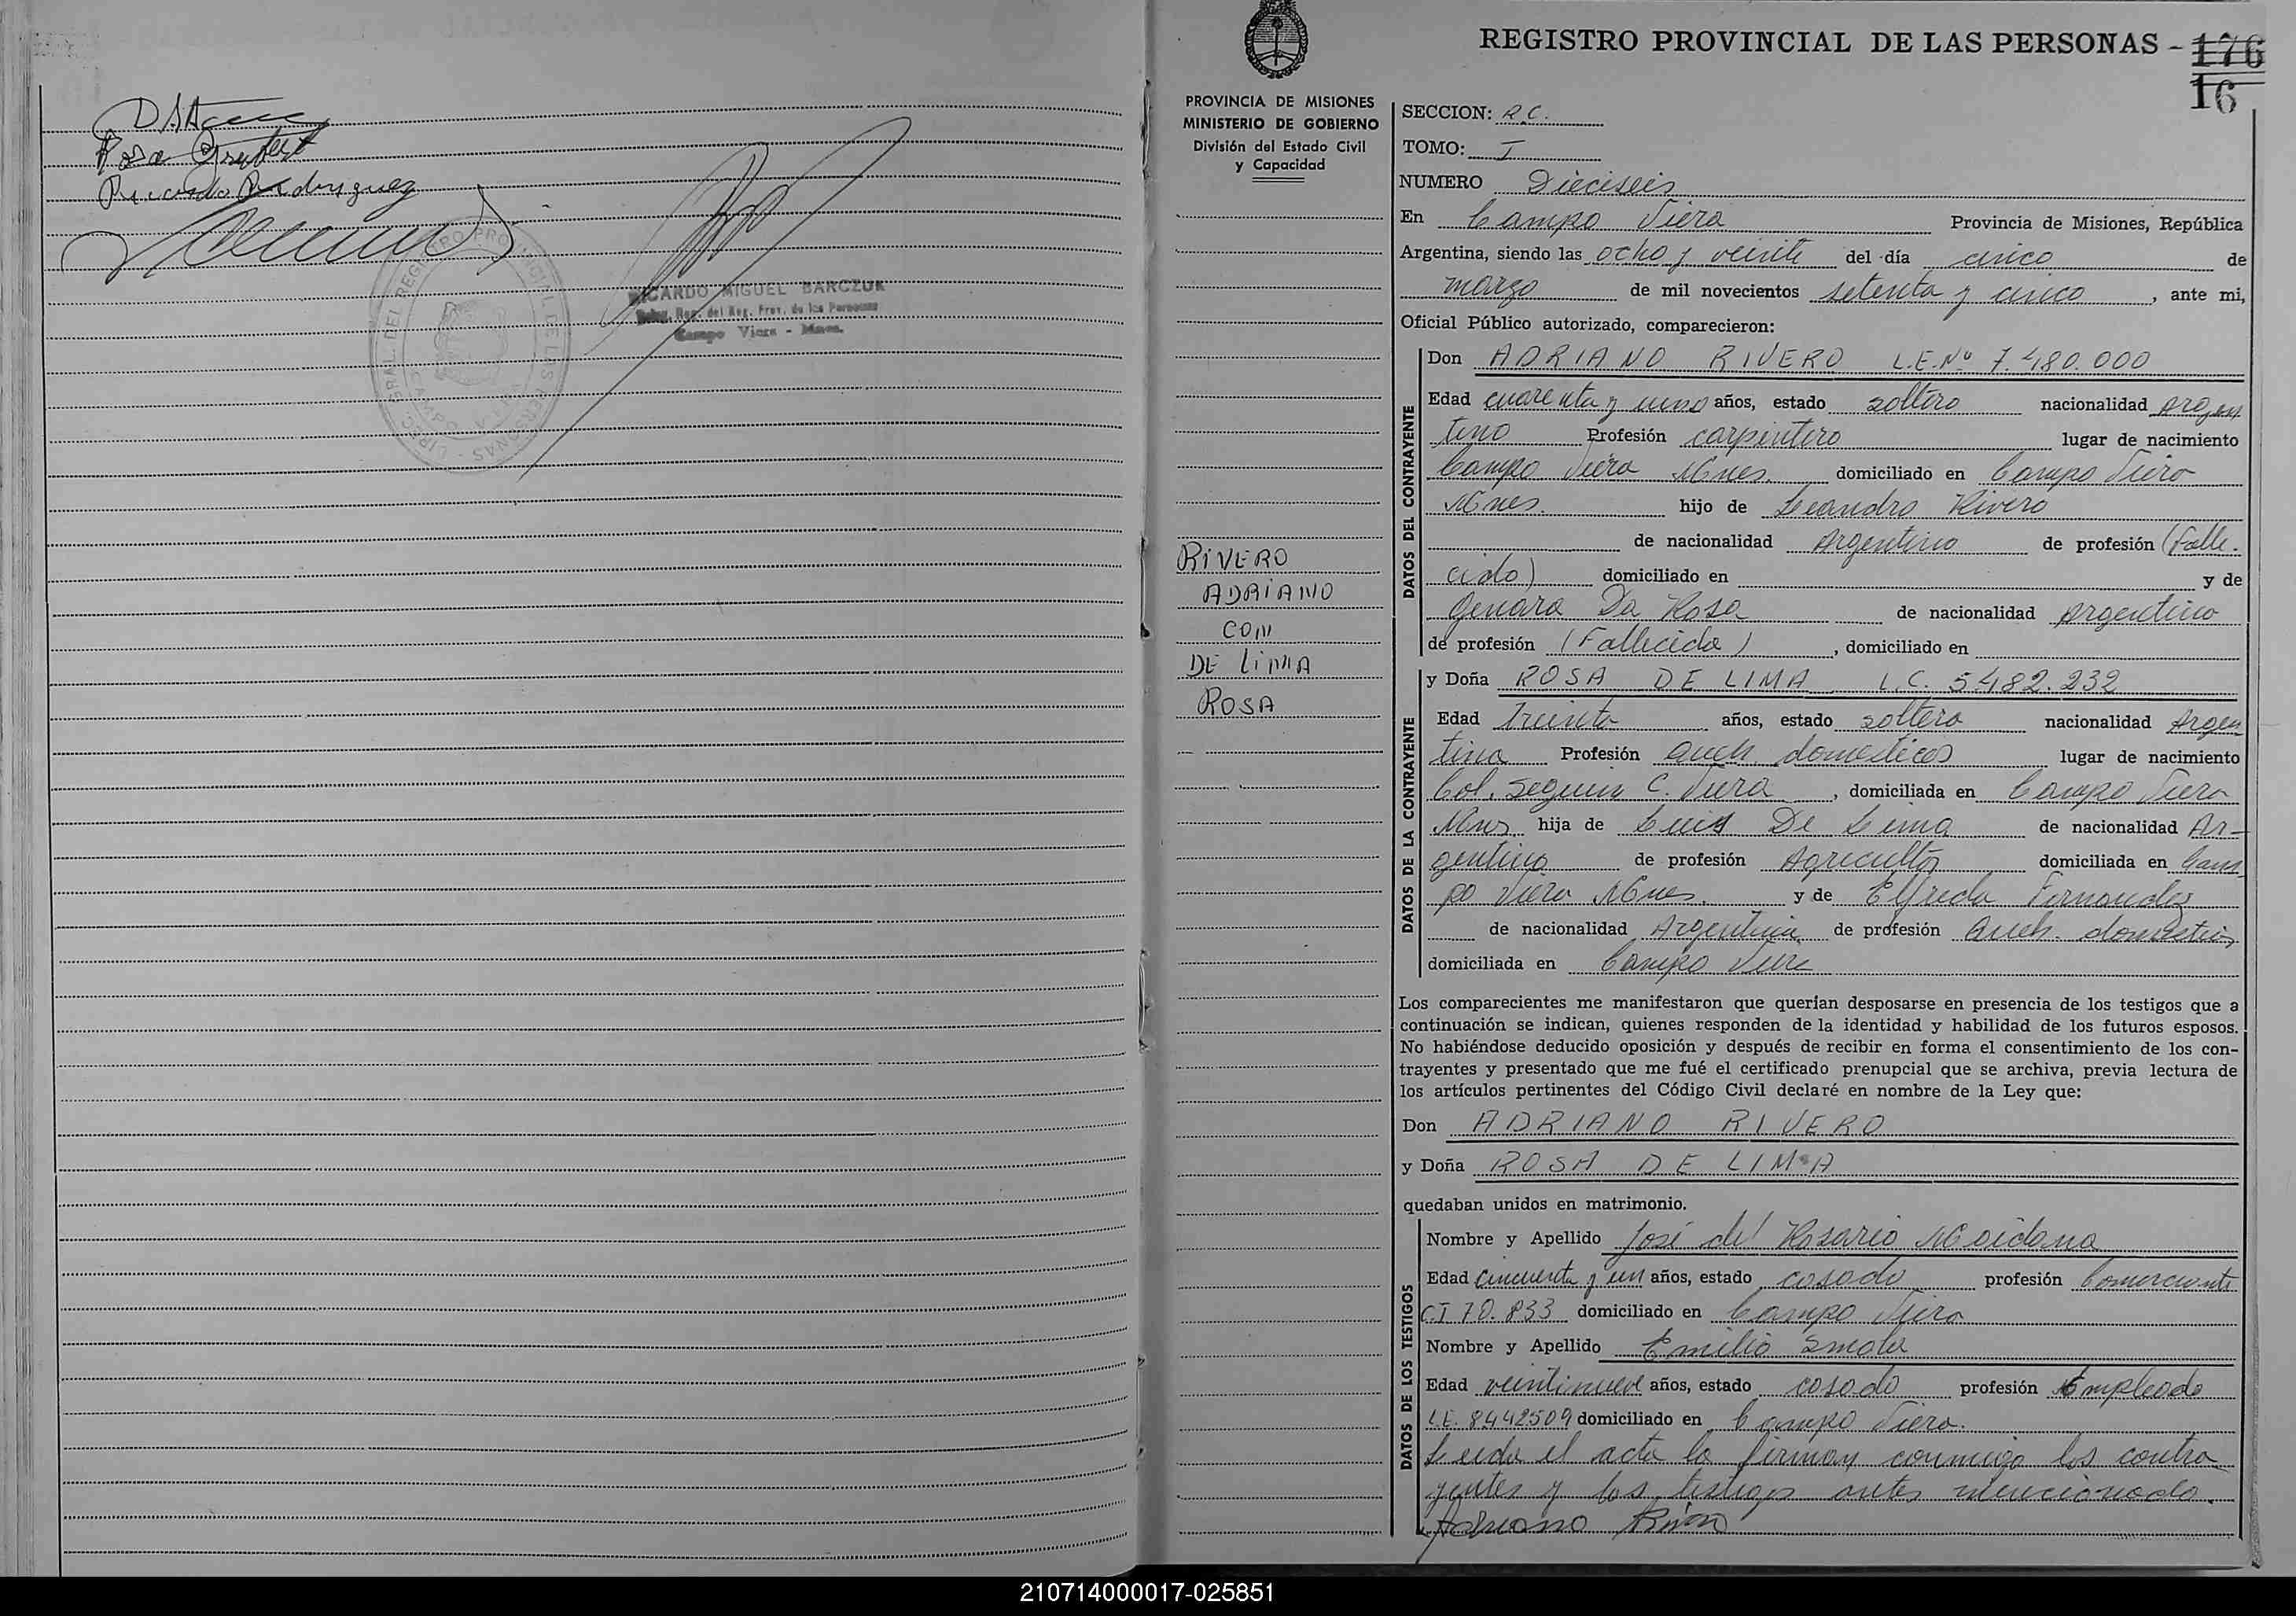 Rosa
Ricardo Rodriguez
RICARDO MIGUEL BARCZUK
del Reg. Prov. de las Personas
Campo Viera - Mnes.
REGISTRO PROVINCIAL DE LAS PERSONAS - 176
16
PROVINCIA DE MISIONES
MINISTERIO DE GOBIERNO
División del Estado Civil
y Capacidad
RIVERO
ADRIANO
CON
DE LIMA
ROSA
SECCION: R.C.
TOMO: I
NUMERO Dieciseis
En Campo Viera Provincia de Misiones, República
Argentina, siendo las ocho y veinte del día cinco de
marzo de mil novecientos setenta y cinco, ante mi,
Oficial Público autorizado, comparecieron:
DATOS DEL CONTRAYENTE
Don ADRIANO RIVERO L.E.Nº 7.480.000
Edad cuarenta y uno años, estado soltero nacionalidad Argen
tino Profesión carpintero lugar de nacimiento
Campo Viera Mnes. domiciliado en Campo Viera
Mnes. hijo de Leandro Rivero
de nacionalidad Argentino de profesión (Falle-
cido) domiciliado en y de
Genara Da Rosa de nacionalidad Argentina
de profesión (Fallecida), domiciliado en
DATOS DE LA CONTRAYENTE
y Doña ROSA DE LIMA L.C. 5.482.232
Edad Treinta años, estado soltera nacionalidad Argen
tina Profesión queh. domesticos lugar de nacimiento
Col. Seguin C. Viera, domiciliada en Campo Viera
Mnes hija de Luis De Lima de nacionalidad Ar-
gentino de profesión Agricultor domiciliada en Cam
po Viera Mnes. y de Elfreda Fernandez
de nacionalidad Argentina de profesión queh. domestico
domiciliada en Campo Viera
Los comparecientes me manifestaron que querían desposarse en presencia de los testigos que a
continuación se indican, quienes responden de la identidad y habilidad de los futuros esposos.
No habiéndose deducido oposición y después de recibir en forma el consentimiento de los con-
trayentes y presentado que me fué el certificado prenupcial que se archiva, previa lectura de
los artículos pertinentes del Código Civil declaré en nombre de la Ley que:
Don ADRIANO RIVERO
y Doña ROSA DE LIMA
quedaban unidos en matrimonio.
DATOS DE LOS TESTIGOS
Nombre y Apellido José del Rosario Maidana
Edad cincuenta y un años, estado casado profesión Comerciante
C.I 70.833 domiciliado en Campo Viera
Nombre y Apellido Emilio
Edad veintinueve años, estado casado profesión Empleado
L.E. 8442509 domiciliado en Campo Viera.
Leida el acta la firman conmigo los contra
yentes y los testigos antes mencionado.
Adriano
210714000017-025851